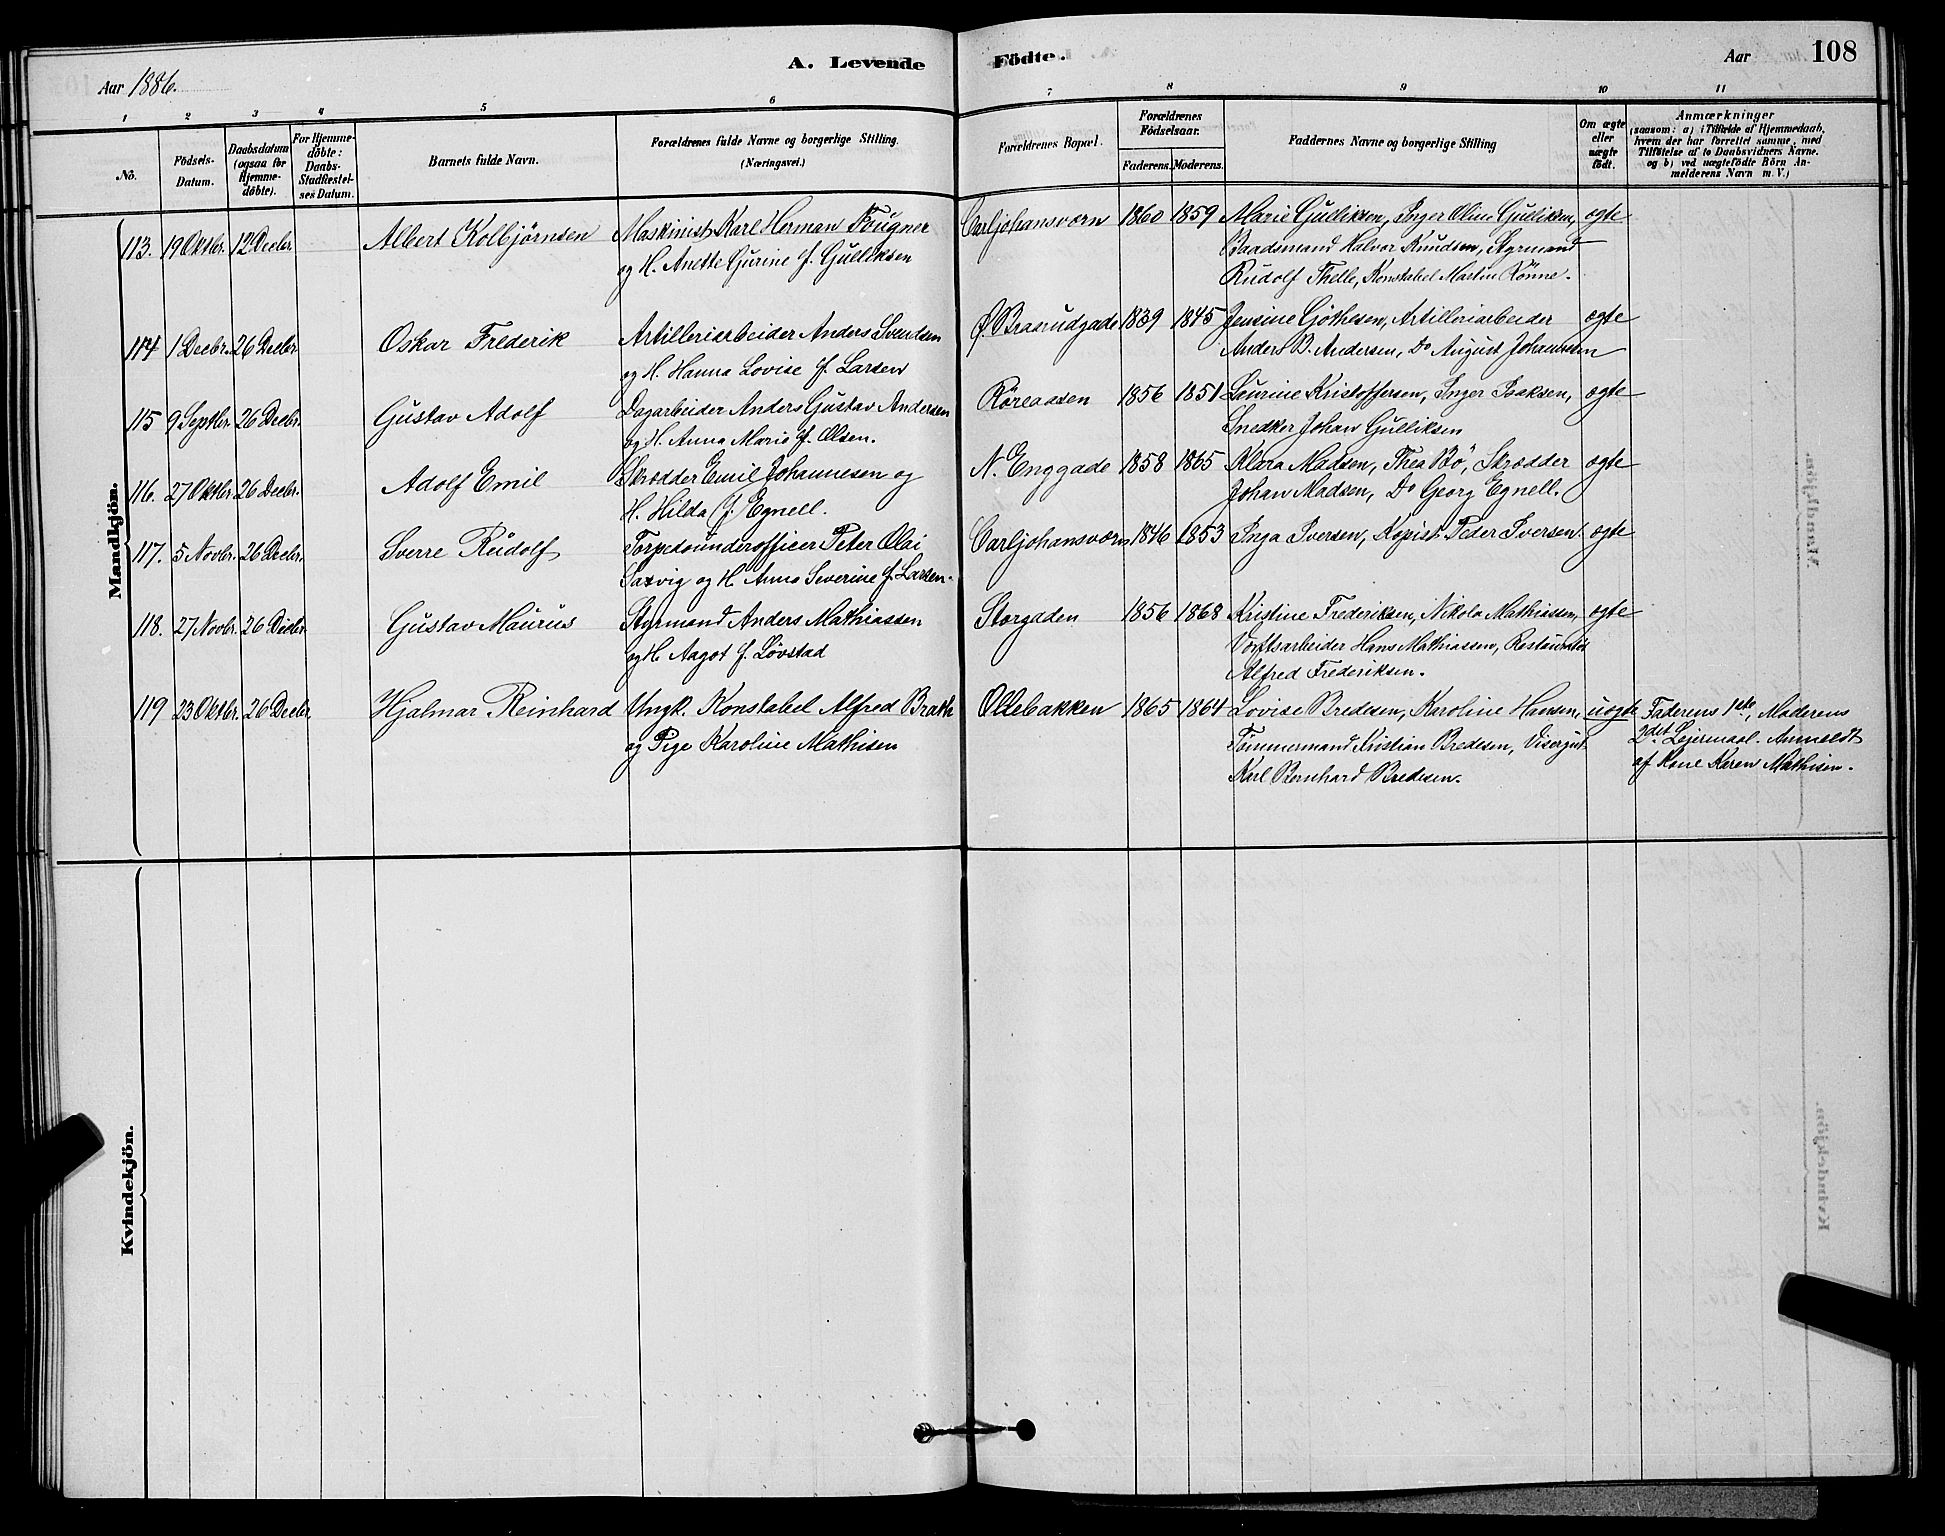 Aar 1886.
A. Levende Födte.
Aar 108
1 2 3 4 5 6 7 8 9 10 11
No.
Födsels-Datum.
Daabsdatum (ogsaa för Hjemmedöbte).
For Hjemmedöbte: Daabs Stadfæstelses Datum.
Barnets fulde Navn.
Forældrenes fulde Navne og borgerlige Stilling.
(Næringsvei.)
Forældrenes Bopæl.
Forældrenes Födselsaar.
Faderens. Moderens.
Faddernes Navne og borgerlige Stilling
Om ægte eller uægte födt.
Anmærkninger
(saasom: a) i Tilfælde af Hjemmedaab,
hvem der har forrettet samme, med
Tilföielse af to Daabsvidners Navne.
og b) ved uægtefödte Börn An-
melderens Navn m. V.)
Mandkjön.
113. 19 Oktbr. 12 Decbr. Albert Kolbjörnsen Maskinist Karl Herman Fougner Carljohansværn 1860 1859 Marie Gulliksen, Inger Oline Gulliksen, ægte
og H. Anette Gurine f. Gulliksen Baadsmand Halvor Knudsen, Styrmand
Rudolf Thelle, Konstabel Martin Rönne.
114 1 Decbr. 26 Decbr Oskar Frederik Artilleriarbeider Anders Svendsen Ø. Braarudgade 1839 1845 Jensine Göthesen, Artilleriarbeider ægte
og H. Hanna Lovise f. Larsen Anders B. Andersen, Do August Johannesen
115 9 Septbr 26 Decbr. Gustav Adolf Dagarbeider Anders Gustav Andersen Röreaasen 1856 1851 Laurine Kristoffersen, Inger Isaksen, ægte
og H. Anna Marie f. Olsen. Snedker Johan Gulliksen
116. 27 Oktbr. 26 Decbr. Adolf Emil Skrædder Emil Johannesen og N. Enggade 1858 1865 Klara Madsen, Thea Bö, Skrædder ægte
H. Hilda f. Egnell. Johan Madsen, Do Georg Egnell.
117. 5 Novbr. 26 Decbr. Sverre Rudolf Torpedounderofficer Peter Olai Carljohansværn 1846 1853 Inga Iversen, Kopist Peder Iversen. ægte
Saxvig og H. Anna Severine f. Larsen.
118. 27 Novbr. 26 Decbr. Gustav Maurus Styrmand Anders Mathiassen Storgaden 1856 1868 Kristine Frederiksen, Nikola Mathiassen, ægte
og H. Aagot f. Lövstad Værftsarbeider Hans Mathiassen, Restauratör
Alfred Frederiksen.
119 23 Oktbr. 26 Decbr. Hjalmar Reinhard Ungk. Konstabel Alfred Brath Ollebakken 1865 1864 Lovise Bredesen, Karoline Hansen, uægte Faderens 1ste, Moderens
og Pige Karoline Mathisen Tömmermand Kristian Bredesen, Visergut 2det Leiermaal. Anmeldt
Karl Bernhard Bredesen. af Kone Karen Mathisen.
Kvindekjön.